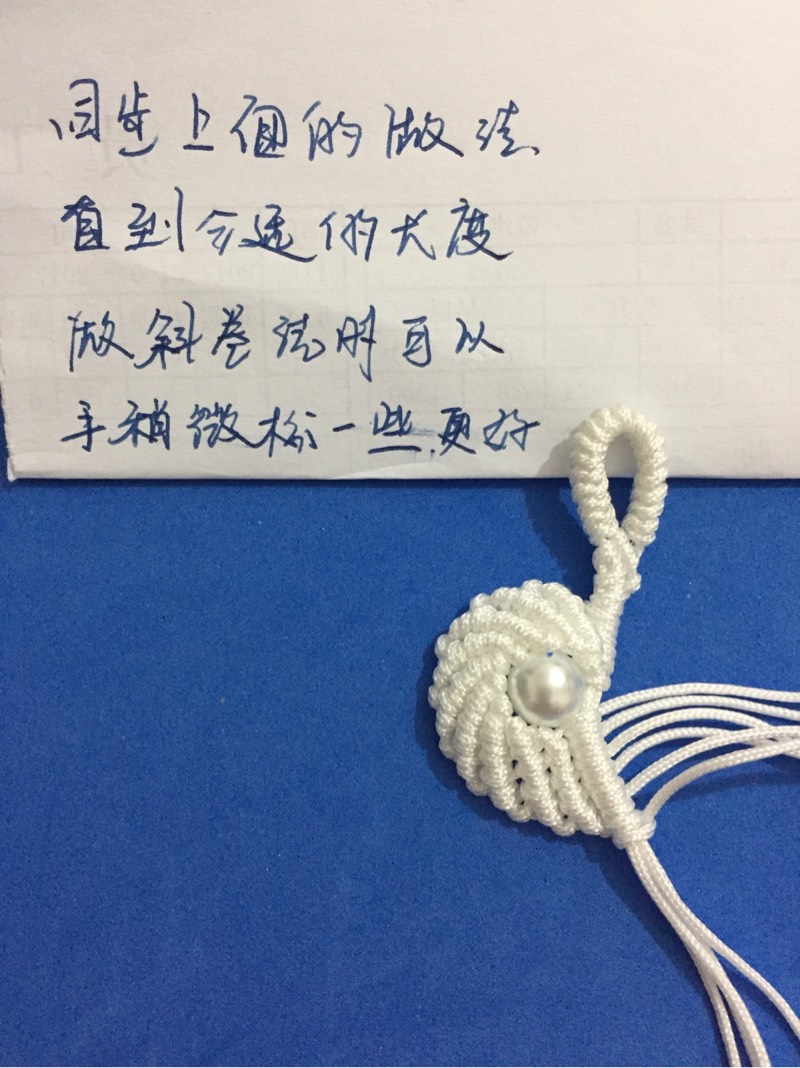 同步上個的做法
直到合适的长度
做斜卷结时可以
手稍微松一些更好